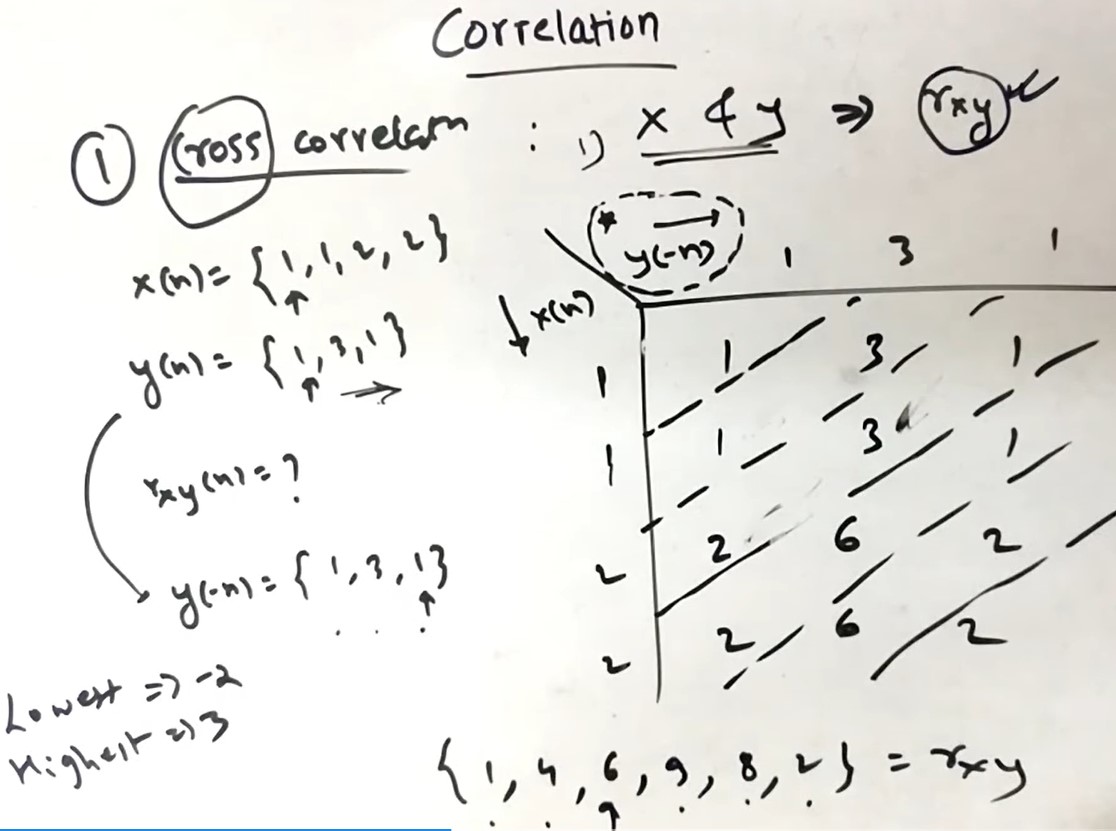 Correlation
① Cross correlatn : 1) x & y ⇒ rxy
x(n) = { 1, 1, 2, 2 }
↑
y(n) = { 1, 3, 1 }
↑ →
rxy(n) = ?
y(-n) = { 1, 3, 1 }
↑
Lowest => -2
Highest => 3
* → y(-n) 1 3 1
↓ x(n)
1 1 3 1
1 1 3 1
2 2 6 2
2 2 6 2
{ 1, 4, 6, 9, 8, 2 } = rxy
↑